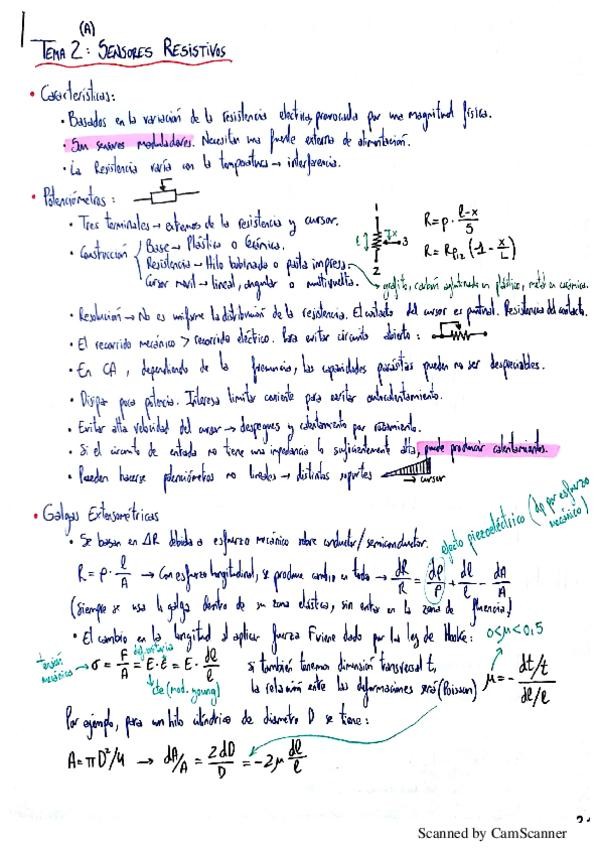 (A)
TEMA 2: SENSORES RESISTIVOS
• Características:
• Basados en la variación de la resistencia electrica, provocada por una magnitud física.
• Son sensores moduladores. Necesitan una fuente externa de alimentación.
• La Resistencia varía con la temperatura → interferencia.
• Potenciómetros:
• Tres terminales → extremos de la resistencia y cursor.
• Construcción { Base → Plástico o Cerámica.
Resistencia → Hilo bobinado o pasta impresa
Cursor movil → lineal, angular o multivuelta.
1
l x 3
2
R = ρ · (l-x)/S
R = R (1 - x/L)
grafito, carbón aglutinado en plástico, metal en cerámica.
• Resolución → No es uniforme la distribución de la resistencia. El contacto del cursor es puntual. Resistencia del contacto.
• El recorrido mecánico > recorrido eléctrico. Para evitar circuito abierto:
• En CA, dependiendo de la frecuencia, las capacidades parásitas pueden no ser despreciables.
• Disipar poca potencia. Interesa limitar corriente para evitar autocalentamiento.
• Evitar alta velocidad del cursor → despegues y calentamiento por rozamiento.
• Si el circuito de entrada no tiene una impedancia lo suficientemente alta, puede producir calentamientos.
• Pueden hacerse potenciómetros no lineales → distintos soportes
→ cursor
• Galgas Extensométricas
efecto piezoeléctrico ( por esfuerzo mecánico)
• Se basan en ΔR debida a esfuerzo mecánico sobre conductor/semiconductor.
R = ρ · l/A → Con esfuerzo longitudinal, se produce cambio en todo → dR/R = dρ/ρ + dl/l - dA/A
(Siempre se usa la galga dentro de su zona elástica, sin entrar en la zona de fluencia)
• El cambio en la longitud al aplicar fuerza F viene dado por la ley de Hooke: 0<μ<0,5
tensión mecánica → σ = F/A = E·ε = E · dl/l
def. unitaria
cte (mod. young)
si también tenemos dimensión transversal t,
la relación entre las deformaciones será (Poisson) μ = - (dt/t)/(dl/l)
Por ejemplo, para un hilo cilíndrico de diametro D se tiene:
A = πD²/4 → dA/A = 2dD/D = -2μ dl/l
Scanned by CamScanner